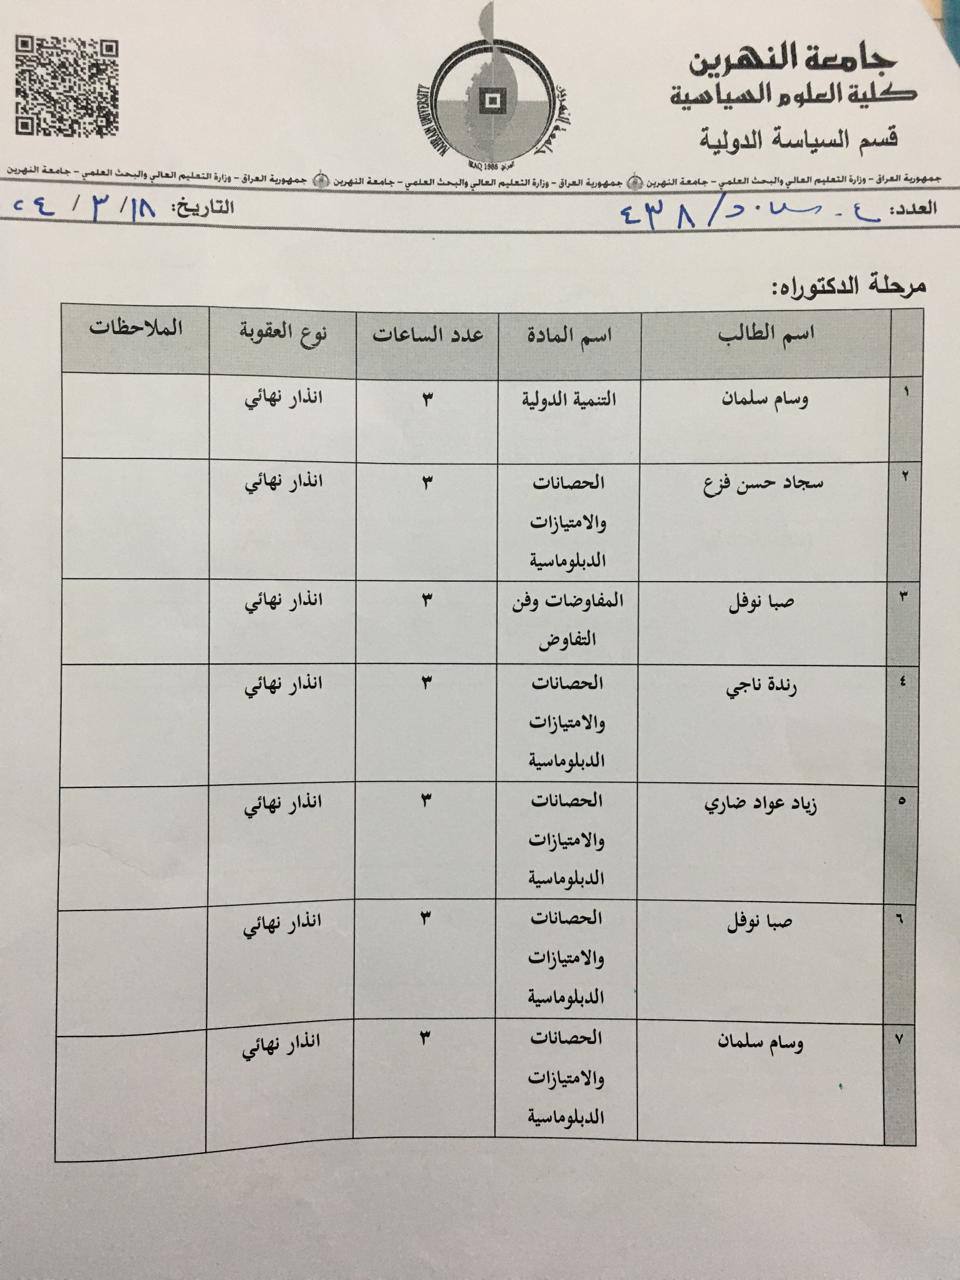 جامعة النهرين
كلية العلوم السياسية
قسم السياسة الدولية
NAHRAIN UNIVERSITY
جامعة النهرين
IRAQ 1986 العراق
جمهورية العراق - وزارة التعليم العالي والبحث العلمي - جامعة النهرين جمهورية العراق - وزارة التعليم العالي والبحث العلمي - جامعة النهرين جمهورية العراق - وزارة التعليم العالي والبحث العلمي - جامعة النهرين
العدد: ٤٣٨
التاريخ: ١٨/ ٣ /
مرحلة الدكتوراه:
اسم الطالب اسم المادة عدد الساعات نوع العقوبة الملاحظات
١ وسام سلمان التنمية الدولية ٣ انذار نهائي
٢ سجاد حسن فزع الحصانات ٣ انذار نهائي
والامتيازات
الدبلوماسية
٣ صبا نوفل المفاوضات وفن ٣ انذار نهائي
التفاوض
٤ رندة ناجي الحصانات ٣ انذار نهائي
والامتيازات
الدبلوماسية
٥ زياد عواد ضاري الحصانات ٣ انذار نهائي
والامتيازات
الدبلوماسية
٦ صبا نوفل الحصانات ٣ انذار نهائي
والامتيازات
الدبلوماسية
٧ وسام سلمان الحصانات ٣ انذار نهائي
والامتيازات
الدبلوماسية